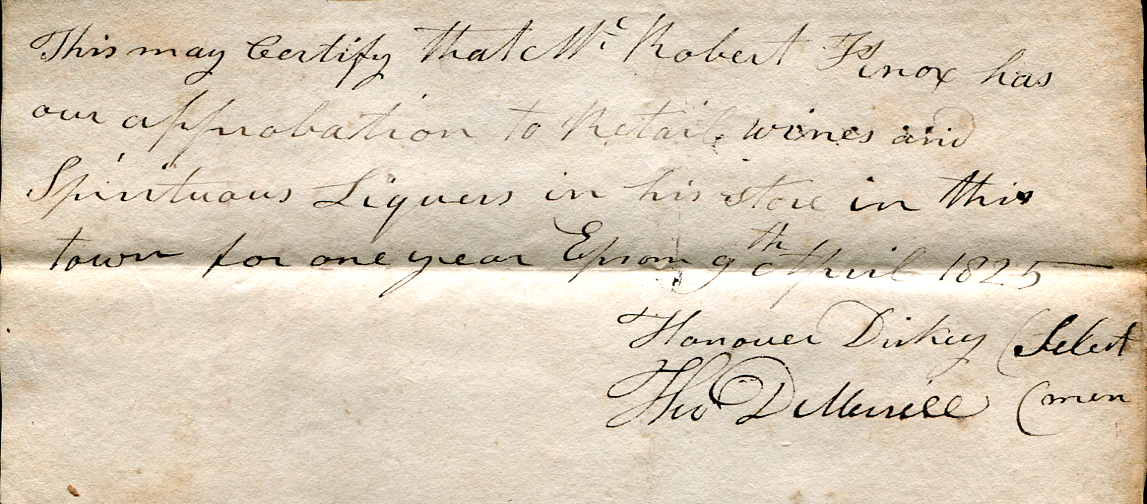 This may Certify that Mr Robert Knox has
our approbation to Retail wines and
Spirituous Liquers in his store in this
town for one year Epsom 9th April 1825
Hanover Dickey (Select
Tho D Merrill (men